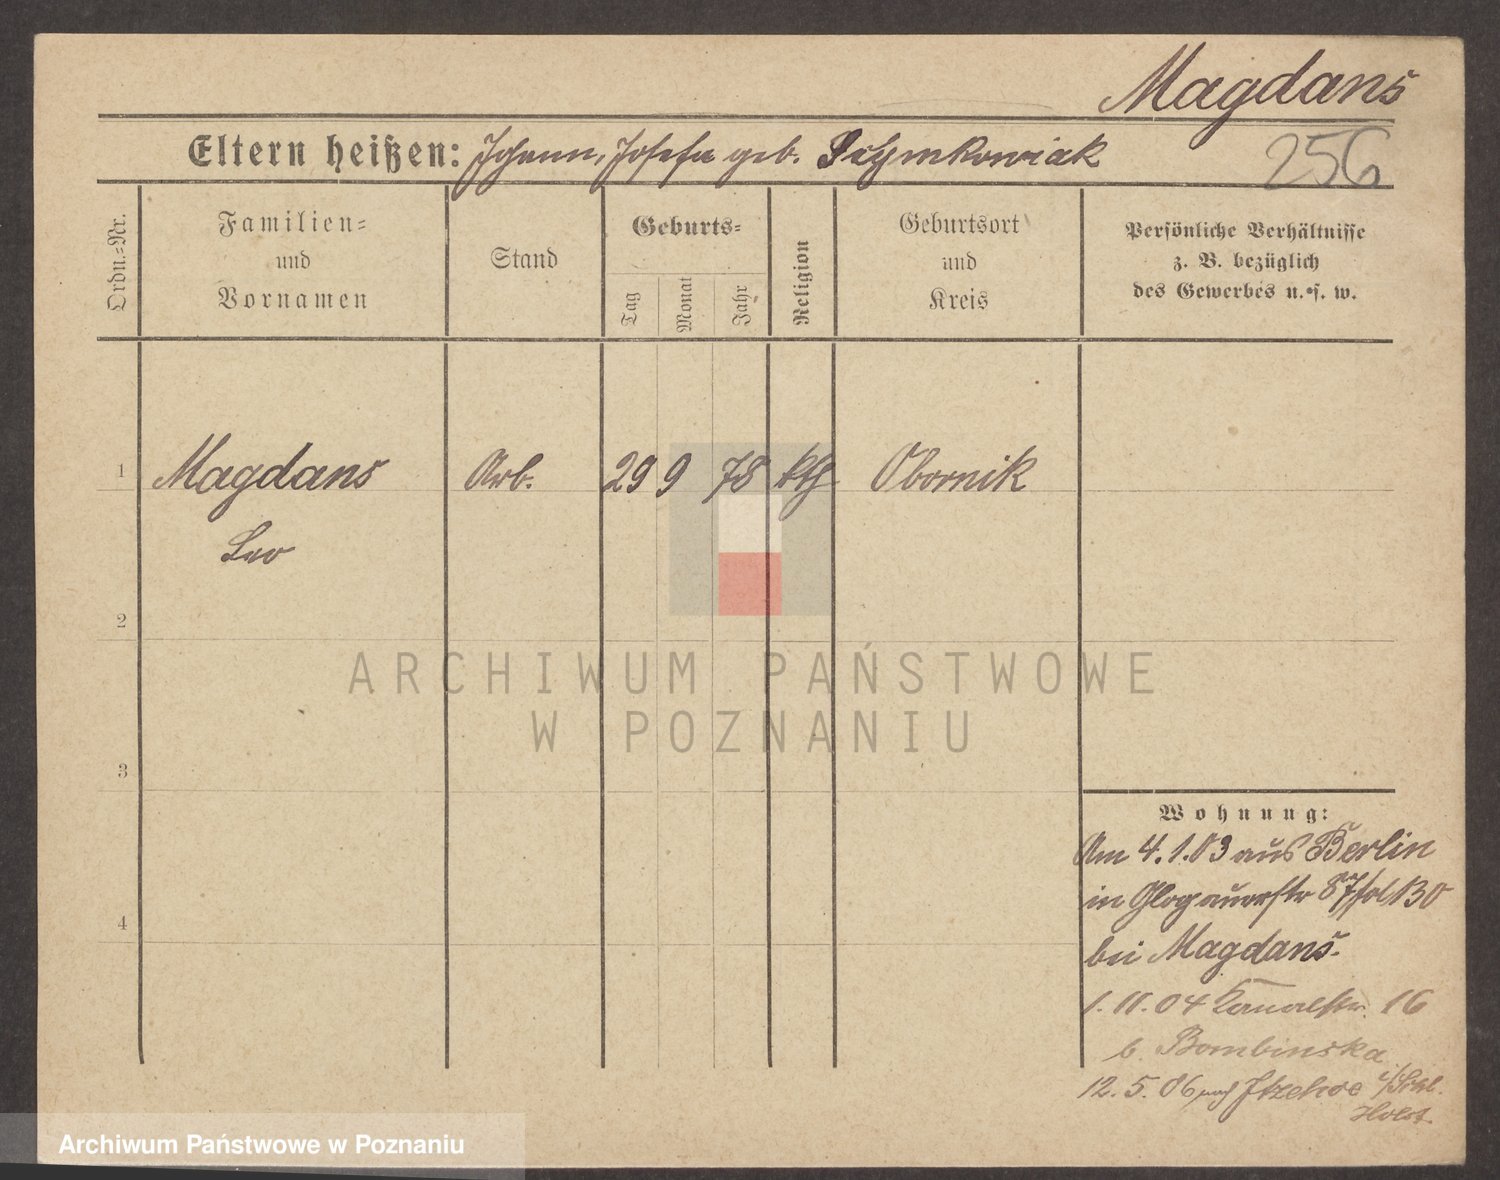 Magdans
256
Eltern heißen: Johann, Josefa geb. Szymkowiak
Ordn.=Nr.
Familien=
und
Vornamen
Stand
Geburts=
Tag
Monat
Jahr
Religion
Geburtsort
und
Kreis
Persönliche Verhältnisse
z. B. bezüglich
des Gewerbes u. s. w.
1 Magdans Arb. 29 9 78 kth Obornik
Leo
2
3
4
ARCHIWUM PAŃSTWOWE
W POZNANIU
Wohnung:
Am 4.1.03 aus Berlin
in Glogauerstr 87
bei Magdans.
1.11.04 Kanalstr. 16
b. Bombinska
12.5.06 nach Itzehoe
Holst.
Archiwum Państwowe w Poznaniu